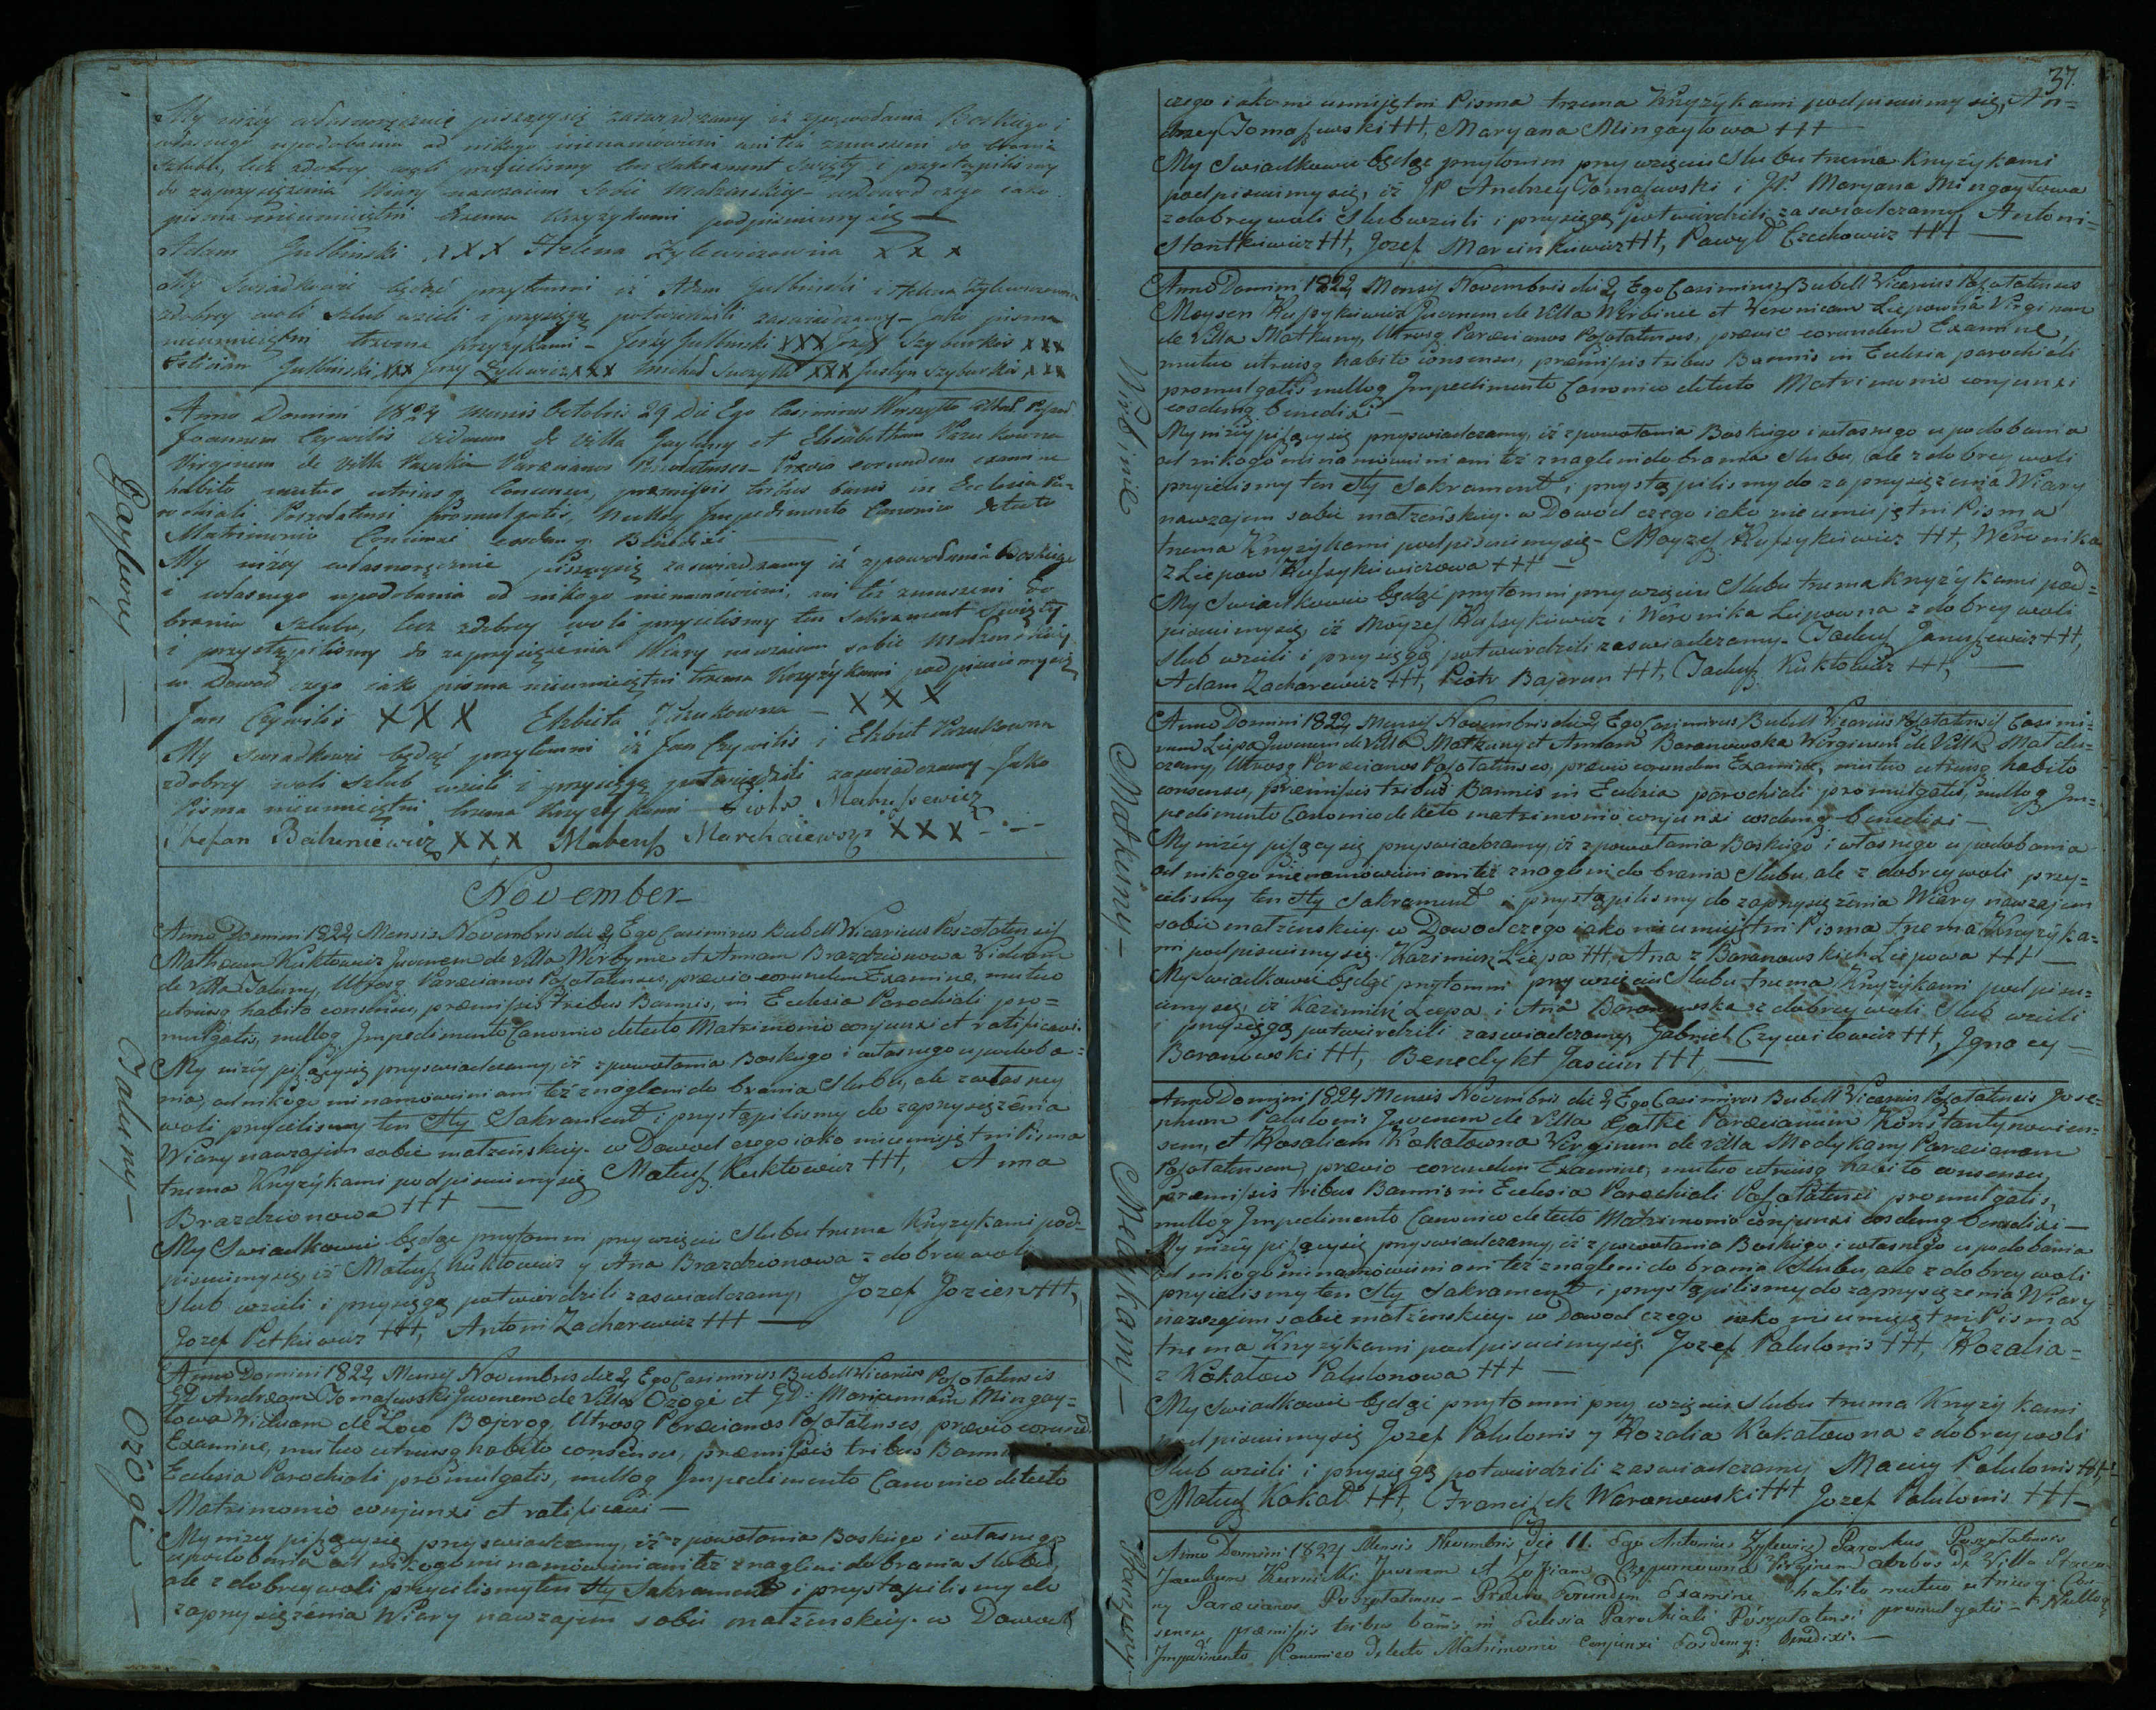 My niżey własnoręcznie piszącysię zaswiadczamy iż zpowodania Boskiego i
własnego upodobania od nikogo nienamówieni ani też zmuszeni do brania
szlubu, lecz zdobrey woli przyielismy ten Sakrament Swięty i przystąpilismy
do zaprzysiężenia Wiary nawzaiem Sobie Małżenskiey wdowod czego iako
pisma nieumieiętni trzema krzyżykami podpisuiemy się —
Adam Gulbinski XXX Helena Zylewiczowna X X X
My Swiadkowie będąć przytomni iż Adam Gulbinski i Helena Zylewiczowna
zdobrey woli szlub wzieli i przysięgą potwierdzili zaswiadczamy – Jako pisma
nieumieiętni trzema krzyżykami – Jerzy Gulbinski XXX Jozef Szyburkis XXX
Felician Gulbinski XXX Jerzy Zylewicz XXX Michał XXX Justyn Szyburkis XXX
Anno Domini 1824 mensis Octobris 29 Die Ego Casimirus
Joannem Czywilis viduum de Villa Gayluny et Elisabetham Pazukowna
Virginem de Villa Parocianos Poszołatenses – Prævio eorundem examine
habito mutuo utriusq Consensu, præmissis tribus banis in Ecclesia Pa-
rochiali Poszołatensi promulgatis, nulloq Impedimento Canonico detecto
Matrimonio Coniunxi eosdemq Benedixi —
My niżey własnoręcznie piszącysię zaswiadczamy iż zpowodania Boskiego
i własnego upodobania od nikogo nienamówieni, ani też zmuszeni do
brania szlubu, lecz zdobrey woli przyielismy ten Sakrament Swięty
i przystąpilismy do zaprzysiężenia Wiary nawzaiem sobie Małżenskiey
w Dowod czego iako pisma nieumieiętni trzema krzyżykami podpisuiemysię
Jan Czywilis XXX Elżbieta Pazukowna – XXX
My swiadkowie będąć przytomni iż Jan Czywilis i Elżbieta Pazukowna
zdobrey woli szlub wzieli i przysięgą potwierdzili zaswiadczamy Jako
Pisma nieumieiętni trzema krzyżykami – Piotr Matuszewicz
Stefan XXX Mateusz XXX – –
Gayluny —
November –
Anno Domini 1824 Mensis Novembris die 2 Ego Casimirus Bubell Vicarius Poszołatensis
Matheum Kuktowicz Juvenem de Villa Wirbynie et Annam Brazdzionowa Viduam
de Villa Taluny, Utrosq Parœcianos Poszołatenses, prævio eorundem Examine, mutuo
utriusq habito consensu, præmissis tribus Bannis, in Eclesia Parochiali pro=
mulgatis, nulloq Impedimento Canonico detecto Matrimonio conjunxi et ratificavi.
My niżéy piszącysię przyswiadczamy, iż zpowołania Boskiego i własnego upodoba=
nia, od nikogo nie namówieni ani też znagleni do brania Slubu, ale zwłasney
woli przyielismy ten Sty Sakrament i przystąpilismy do zaprzysiężénia
Wiary nawzajem sobie małżeńskiey. w Dowod czego iako nieumiejętni Pisma
trzema Krzyżykami podpisuiemysię Mateusz Kuktowicz †††, Anna
Brazdzionowa ††† —
My Swiadkowie będąc przytomni przy wzięciu Slubu trzema Krzyżykami pod=
pisuiemysię, iż Mateusz Kuktowicz y Ana Brazdzionowa z dobrey woli
Slub wzieli i przysięgą potwierdzili zaswiadczamy, Jozef Jozien †††,
Jozef Petkiewicz †††, Antoni Zacharewicz ††† —
Taluny –
Anno Domini 1824 Mensis Novembris die 2 Ego Casimirus Bubell Vicarius Poszołatensis
GD Andream Tomaszewski Juvenem de Villa Ozogi et GD: Mariannam Mingay=
łowa Viduam de Loco Utrosq Parœcianos Poszołatenses prævio eorund.
Examine, mutuo utriusq habito consensu, præmissis tribus Bannis in
Eclesia Parochiali promulgatis, nulloq Impedimento Canonico detecto
Matrimonio conjunxi et ratificavi —
My niżey piszącysię przyswiadczamy, iż z powołania Boskiego i własnego
upodobania od nikogo nie namówieni ani też znagleni do brania Slubu,
ale z dobrey woli przyielismy ten Sty Sakrament i przystąpilismy do
zaprzysiężénia Wiary nawzajem sobie małżeńskiey. w Dowod
Ozogi —
37.
czego iako nie umiejętni Pisma trzema Krzyżykami podpisuiemy się, An=
drzey Tomaszewski †††, Maryana Mingayłowa †††
My Swiadkowie będąc przytomni przy wzięciu Slubu trzema Krzyżykami
podpisuiemy się, iż JP Andrzey Tomaszewski i JP. Maryana Mingayłowa
z dobrey woli Slub wzieli i przysięgą potwierdzili zaswiadczamy Antoni
Stantkiewicz †††, Jozef Marcinkiewicz †††, Paweł Czechowicz ††† —
Anno Domini 1824 Mensis Novembris die 2 Ego Casimirus Bubell Vicarius Poszołatensis
Moysen Juvenem de Villa Wirbinie et Veronicam Liepowna Virginem
de Villa Matkuny, Utrosq Parœcianos Poszołatenses, prævio eorundem Examine,
mutuo utriusq habito consensu, præmissis tribus Bannis in Eclesia parochiali
promulgatis nulloq Impedimento Canonico detecto Matrimonio conjunxi
eosdemq benedixi —
My niżéy piszącysię przyswiadczamy, iż zpowołania Boskiego i własnego upodobania
od nikogo nie namówieni ani też znagleni do brania Slubu, ale z dobrey woli
przyielismy ten Sty Sakrament i przystąpilismy do zaprzysiężenia Wiary
nawzajem sobie małżeńskiey. w Dowod czego iako nie umiejętni Pisma
trzema Krzyżykami podpisuiemysię – Moyzesz ††† Weronika
z Liepow ††† —
My Swiadkowie będąć przytomni przy wzięciu Slubu trzema Krzyżykami pod=
pisuiemysię, iż Moyzesz i Weronika Liepowna z dobrey woli
Slub wzieli i przysięgą potwierdzili zaswiadczamy. Tadeusz Januszewicz †††,
Adam Zacharewicz †††, Piotr Bajorun †††, Tadeusz Kuktowicz †††, —
Wirbinie
Anno Domini 1824 Mensis Novembris die 2 Ego Casimirus Bubell Vicarius Poszołatensis Casimi=
rum Liepa Juvenem de Villa Matkuny et Annam Baranowska Virginem de Villa
Utrosq Parœcianos Poszołatenses, prævio eorundem Examine, mutuo utriusq habito
consensu, præmissis tribus Bannis in Eclesia parochiali promulgatis, nulloq Im=
pedimento Canonico detecto matrimonio conjunxi eosdemq benedixi —
My niżéy piszącysię przyswiadczamy, iż zpowołania Boskiego i własnego upodobania
od nikogo nie namówieni ani też znagleni do brania Slubu, ale z dobrey woli przy=
ielismy ten Sty Sakrament i przystąpilismy do zaprzysiężénia Wiary nawzajem
sobie małżeńskiey. w Dowod czego iako nieumiejętni Pisma trzema Krzyżyka=
mi podpisuiemysię. Kazimierz Liepa ††† Ana z Baranowskich Liepowa ††† —
My Swiadkowie będąć przytomni przy wzięciu Slubu trzema Krzyżykami podpisu=
iemy się, iż Kazimierz Liepa i Ana Baranowska z dobrey woli Slub wzieli
i przysięgą potwierdzili zaswiadczamy, Gabriel Czywilowicz †††, Ignacy
Baranowski †††, Benedykt Jasiun ††† —
Matkuny –
Anno Domini 1824 Mensis Novembris die 2 Ego Casimirus Bubell Vicarius Poszołatensis Jose=
phum Palulonis Juvenem de Villa Parœcianum Konstantynowien=
sem, et Rosaliam Kokałowna Virginem de Villa Medykany Parœcianam
Poszołatensem, prævio eorundem Examine, mutuo utriusq habito consensu,
præmissis tribus Bannis in Eclesia Parochiali Poszołatensi promulgatis,
nulloq Impedimento Canonico detecto Matrimonio conjunxi eosdemq benedixi —
My niżéy piszącysię przyswiadczamy, iż z powołania Boskiego i własnego upodobania
od nikogo nie namówieni ani też znagleni do brania Slubu, ale z dobrey woli
przyielismy ten Sty Sakrament i przystąpilismy do zaprzysiężenia Wiary
nawzajem sobie małżeńskiey. w Dowod czego iako nieumiejętni Pisma
trzema Krzyżykami podpisuiemysię Jozef Palulonis †††, Rozalia =
z Kokałow Palulonowa ††† —
My Swiadkowie będąć przytomni przy wzięciu Slubu trzema Krzyżykami
podpisuiemysię Jozef Palulonis y Rozalia Kokałowna z dobrey woli
Slub wzieli i przysięgą potwierdzili zaswiadczamy Maciey Palulonis †††
Mateusz Kokał †††, Franciszek Waranowski ††† Jozef Palulonis †††
Medykany –
Anno Domini 1824 Mensis Novembris Die 11. Ego Antonius Zylewicz Parochus Poszołatensis
Jacobum Juvenem et Zofiam Virginem ambos de Villa
ny Parœcianos Poszołatenses – Prævio Eorundem Examine habito mutuo utriusq: Con
sensu, præmissis tribus bañis in Eclesia Parochiali Poszołatensi promulgatis – Nulloq:
Impedimento Canonico Detecto Matrimonio Conjunxi Eosdemq: Benedixi. —